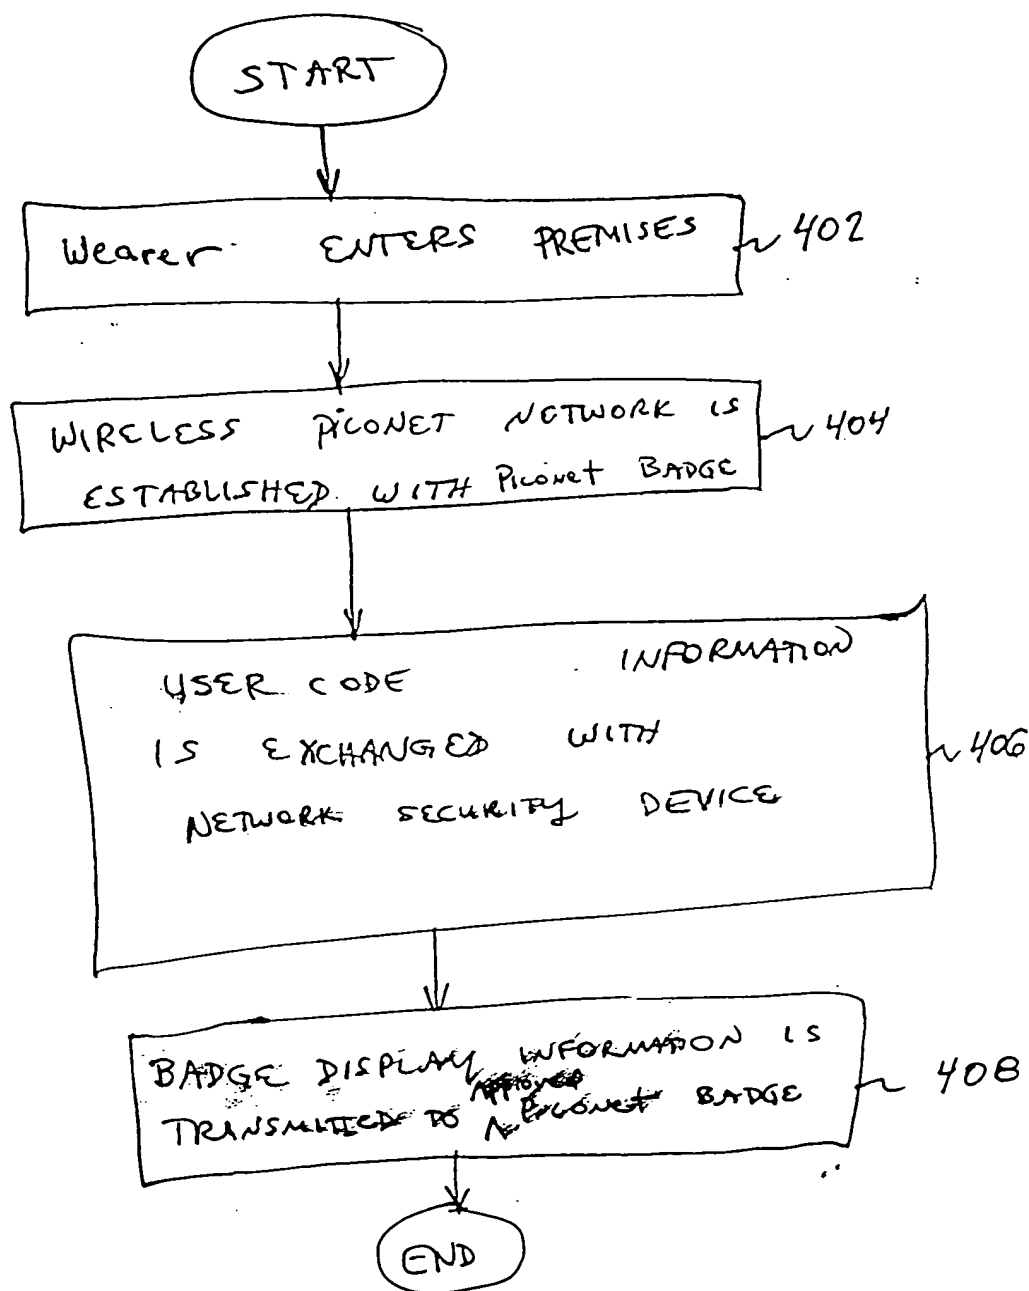 START
Wearer ENTERS PREMISES
402
WIRELESS PICONET NETWORK IS
ESTABLISHED WITH Piconet BADGE
404
USER CODE INFORMATION
IS EXCHANGED WITH
NETWORK SECURITY DEVICE
406
BADGE DISPLAY INFORMATION IS
APPROVED
TRANSMITTED TO PICONET BADGE
408
END